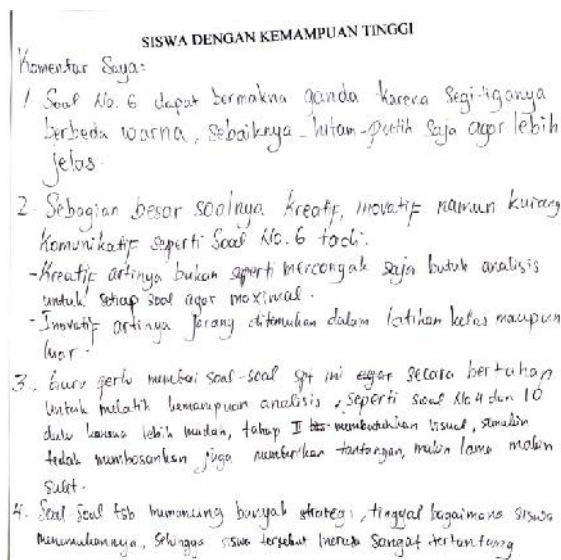 SISWA DENGAN KEMAMPUAN TINGGI
Komentar Saya:
1 Soal No. 6 dapat bermakna ganda karena Segi-tiganya
berbeda warna, Sebaiknya hitam-putih Saja agar lebih
jelas.
2. Sebagian besar soalnya kreatif, inovatif namun kurang
Komunikatif seperti Soal No. 6 tadi.
- Kreatif artinya bukan seperti mencongak saja butuh analisis
untuk setiap soal agar maximal.
- Inovatif artinya jarang ditemukan dalam latihan kelas maupun
luar.
3. Guru perlu memberi soal-soal spt ini secara bertahap
untuk melatih kemampuan analisis, seperti soal No 4 dan 10
dulu karena lebih mudah, tahap II membutuhkan visual,
tidak membosankan juga memberikan tantangan, makin lama makin
sulit.
4. Soal-Soal tsb memancing banyak strategi, tinggal bagaimana siswa
menemukannya, Sehingga siswa tersebut merasa Sangat tertantang